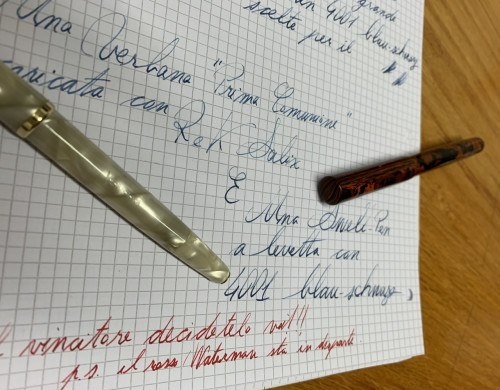 grande
un 4001 blau-schwarz
scelto per il
Una Verbana "Prima Comunione"
caricata con R&K Salix
E
Una Smili Pen
a levetta con
4001 blau-schwarz
l vincitore decidetelo voi!!!
p.s. il rosso Waterman sta in disparte